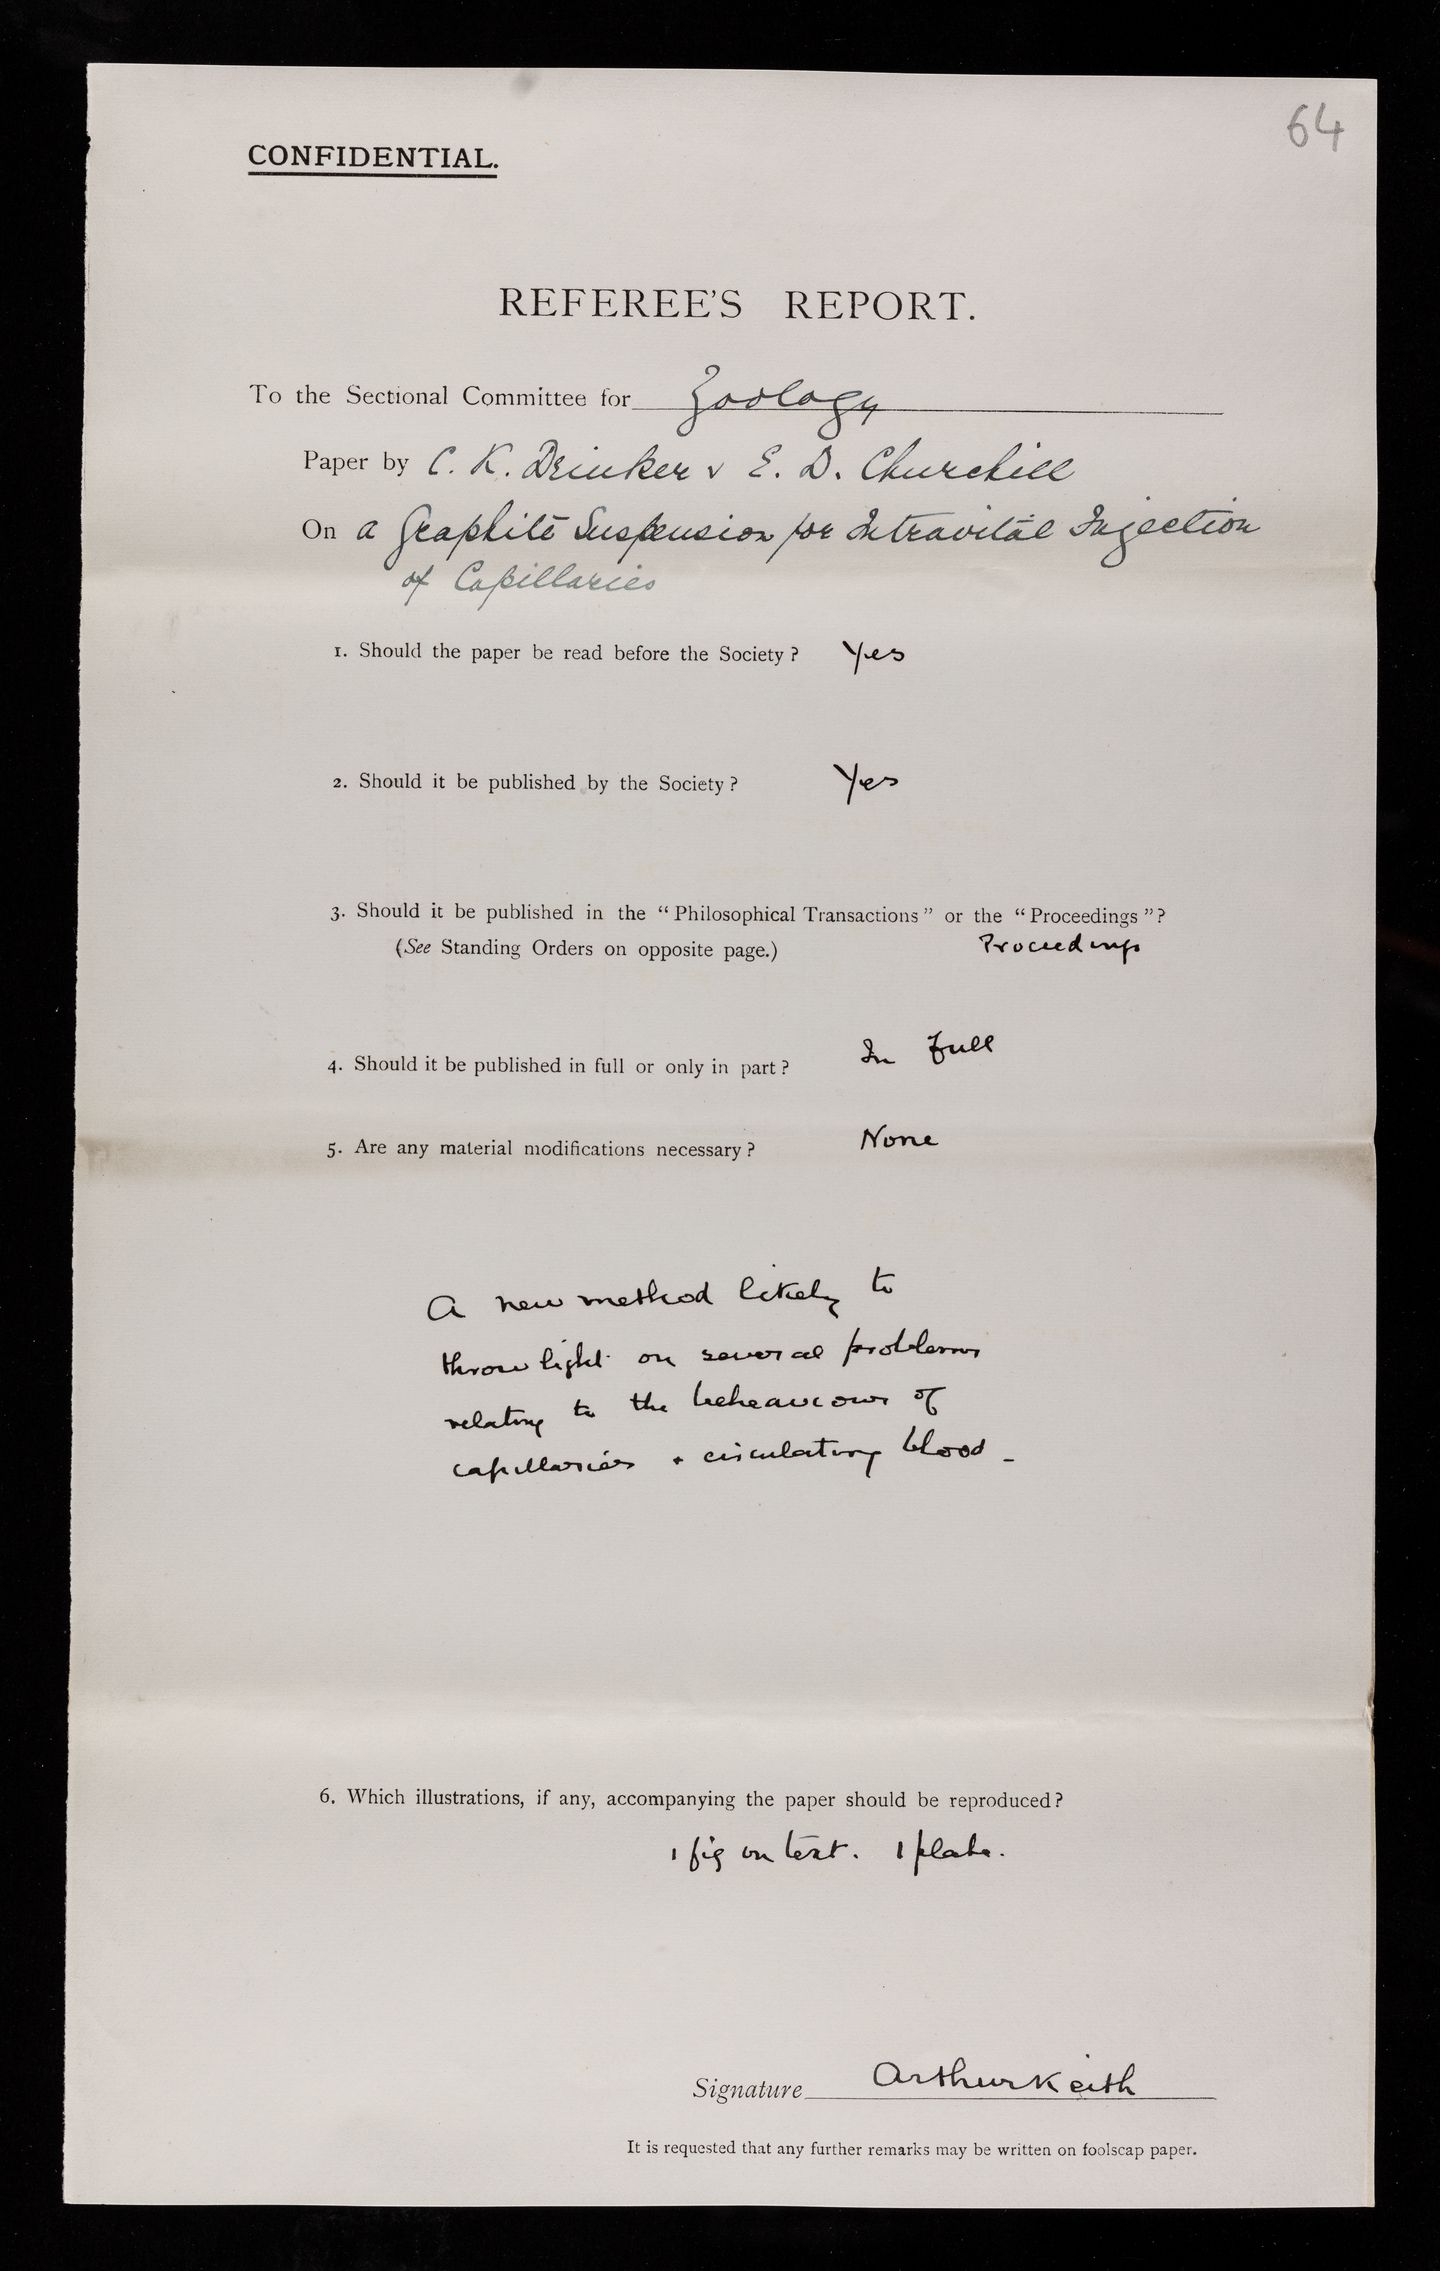 64
CONFIDENTIAL.
REFEREE'S REPORT.
To the Sectional Committee for Zoology
Paper by C. K. Drinker & E. D. Churchill
On a Graphite Suspension for Intravital Injection
of Capillaries
1. Should the paper be read before the Society? Yes
2. Should it be published by the Society? Yes
3. Should it be published in the “Philosophical Transactions” or the “Proceedings”?
(See Standing Orders on opposite page.) Proceedings
4. Should it be published in full or only in part? In full
5. Are any material modifications necessary? None
A new method likely to
throw light on several problems
relating to the beheaviour of
capillaries & circulating blood -
6. Which illustrations, if any, accompanying the paper should be reproduced?
1 fig in text. 1 plate.
Signature Arthur Keith
It is requested that any further remarks may be written on foolscap paper.